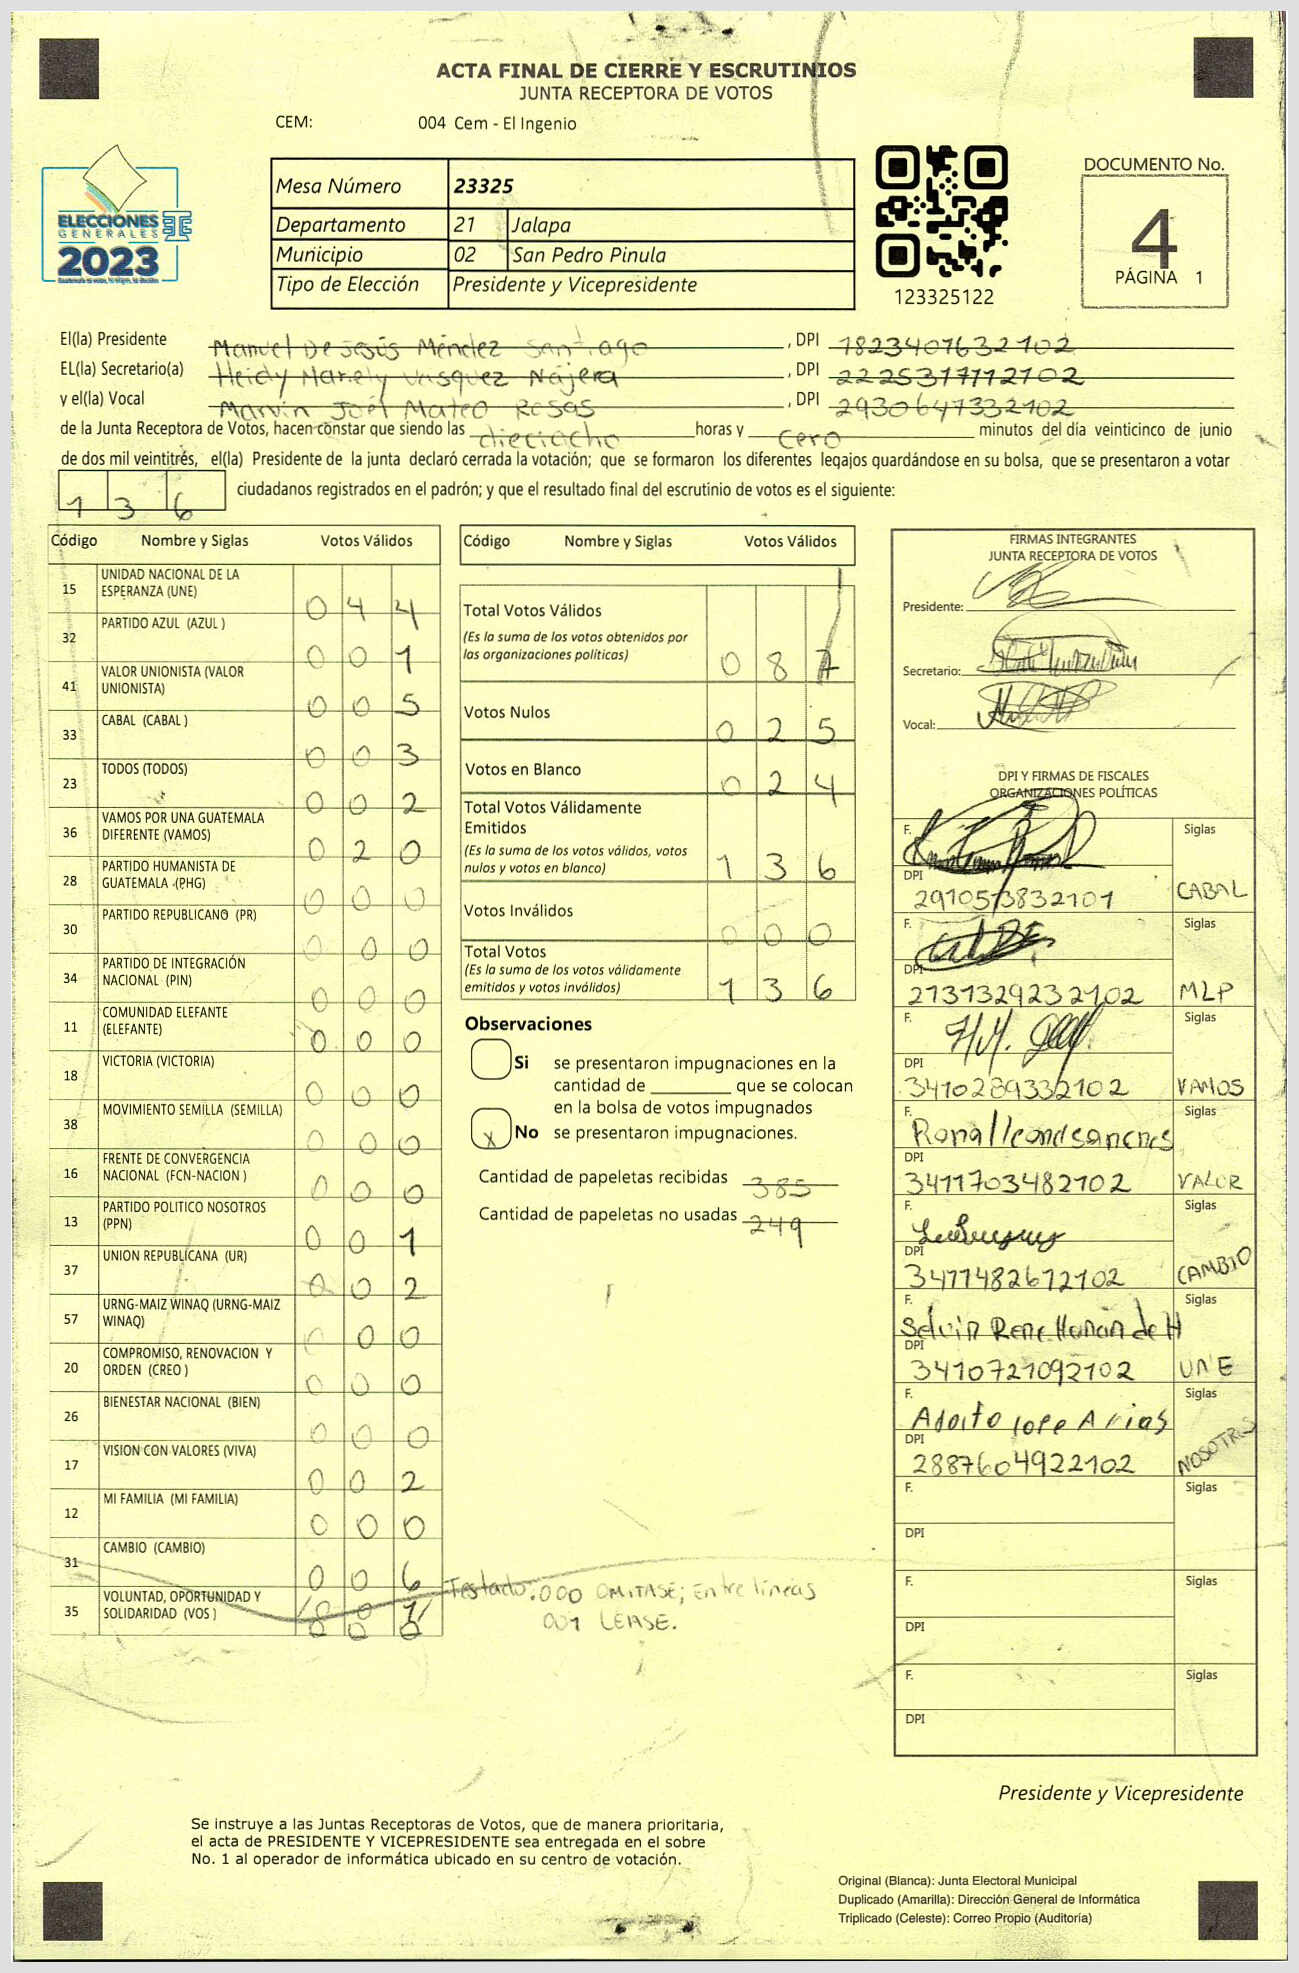 ACTA FINAL DE CIERRE Y ESCRUTINIOS
JUNTA RECEPTORA DE VOTOS
CEM: 004 Cem - El Ingenio
ELECCIONES
GENERALES
2023
Mesa Número 23325
Departamento 21 Jalapa
Municipio 02 San Pedro Pinula
Tipo de Elección Presidente y Vicepresidente
123325122
DOCUMENTO No.
4
PÁGINA 1
El(la) Presidente Manuel De Jesús Méndez Santiago , DPI 1823407632102
EL(la) Secretario(a) Heidy Marely Vasquez Nájera , DPI 2225317112102
y el(la) Vocal Marvin Joél Mateo Rosas , DPI 2930647332102
de la Junta Receptora de Votos, hacen constar que siendo las dieciocho horas y cero minutos del día veinticinco de junio
de dos mil veintitrés, el(la) Presidente de la junta declaró cerrada la votación; que se formaron los diferentes legajos guardándose en su bolsa, que se presentaron a votar
136 ciudadanos registrados en el padrón; y que el resultado final del escrutinio de votos es el siguiente:
Código Nombre y Siglas Votos Válidos
15 UNIDAD NACIONAL DE LA ESPERANZA (UNE) 044
32 PARTIDO AZUL (AZUL ) 001
41 VALOR UNIONISTA (VALOR UNIONISTA) 005
33 CABAL (CABAL ) 003
23 TODOS (TODOS) 002
36 VAMOS POR UNA GUATEMALA DIFERENTE (VAMOS) 020
28 PARTIDO HUMANISTA DE GUATEMALA (PHG) 000
30 PARTIDO REPUBLICANO (PR) 000
34 PARTIDO DE INTEGRACIÓN NACIONAL (PIN) 000
11 COMUNIDAD ELEFANTE (ELEFANTE) 000
18 VICTORIA (VICTORIA) 000
38 MOVIMIENTO SEMILLA (SEMILLA) 000
16 FRENTE DE CONVERGENCIA NACIONAL (FCN-NACION ) 000
13 PARTIDO POLITICO NOSOTROS (PPN) 001
37 UNION REPUBLICANA (UR) 002
57 URNG-MAIZ WINAQ (URNG-MAIZ WINAQ) 000
20 COMPROMISO, RENOVACION Y ORDEN (CREO ) 000
26 BIENESTAR NACIONAL (BIEN) 000
17 VISION CON VALORES (VIVA) 002
12 MI FAMILIA (MI FAMILIA) 000
31 CAMBIO (CAMBIO) 006
35 VOLUNTAD, OPORTUNIDAD Y SOLIDARIDAD (VOS ) /001/ 000
Testado: 000 OMITASE; Entre líneas
001 LEASE.
Código Nombre y Siglas Votos Válidos
Total Votos Válidos 087
(Es la suma de los votos obtenidos por las organizaciones políticas)
Votos Nulos 025
Votos en Blanco 024
Total Votos Válidamente Emitidos 136
(Es la suma de los votos válidos, votos nulos y votos en blanco)
Votos Inválidos 000
Total Votos 136
(Es la suma de los votos válidamente emitidos y votos inválidos)
Observaciones
Si se presentaron impugnaciones en la
cantidad de ________ que se colocan
en la bolsa de votos impugnados
x No se presentaron impugnaciones.
Cantidad de papeletas recibidas 385
Cantidad de papeletas no usadas 249
FIRMAS INTEGRANTES
JUNTA RECEPTORA DE VOTOS
Presidente:
Secretario:
Vocal:
DPI Y FIRMAS DE FISCALES
ORGANIZACIONES POLÍTICAS
F. Siglas
DPI 2910573832101 CABAL
F. Siglas
DPI 2131329232102 MLP
F. Siglas
DPI 3410289332102 VAMOS
F. Siglas
DPI 3411703482102 VALOR
F. Siglas
DPI 3411482672102 CAMBIO
F. Selvin Rene Siglas
DPI 3410721092102 UNE
F. Arias Siglas
DPI 2887604922102 NOSOTRS
F. Siglas
DPI
F. Siglas
DPI
F. Siglas
DPI
Presidente y Vicepresidente
Se instruye a las Juntas Receptoras de Votos, que de manera prioritaria,
el acta de PRESIDENTE Y VICEPRESIDENTE sea entregada en el sobre
No. 1 al operador de informática ubicado en su centro de votación.
Original (Blanca): Junta Electoral Municipal
Duplicado (Amarilla): Dirección General de Informática
Triplicado (Celeste): Correo Propio (Auditoría)